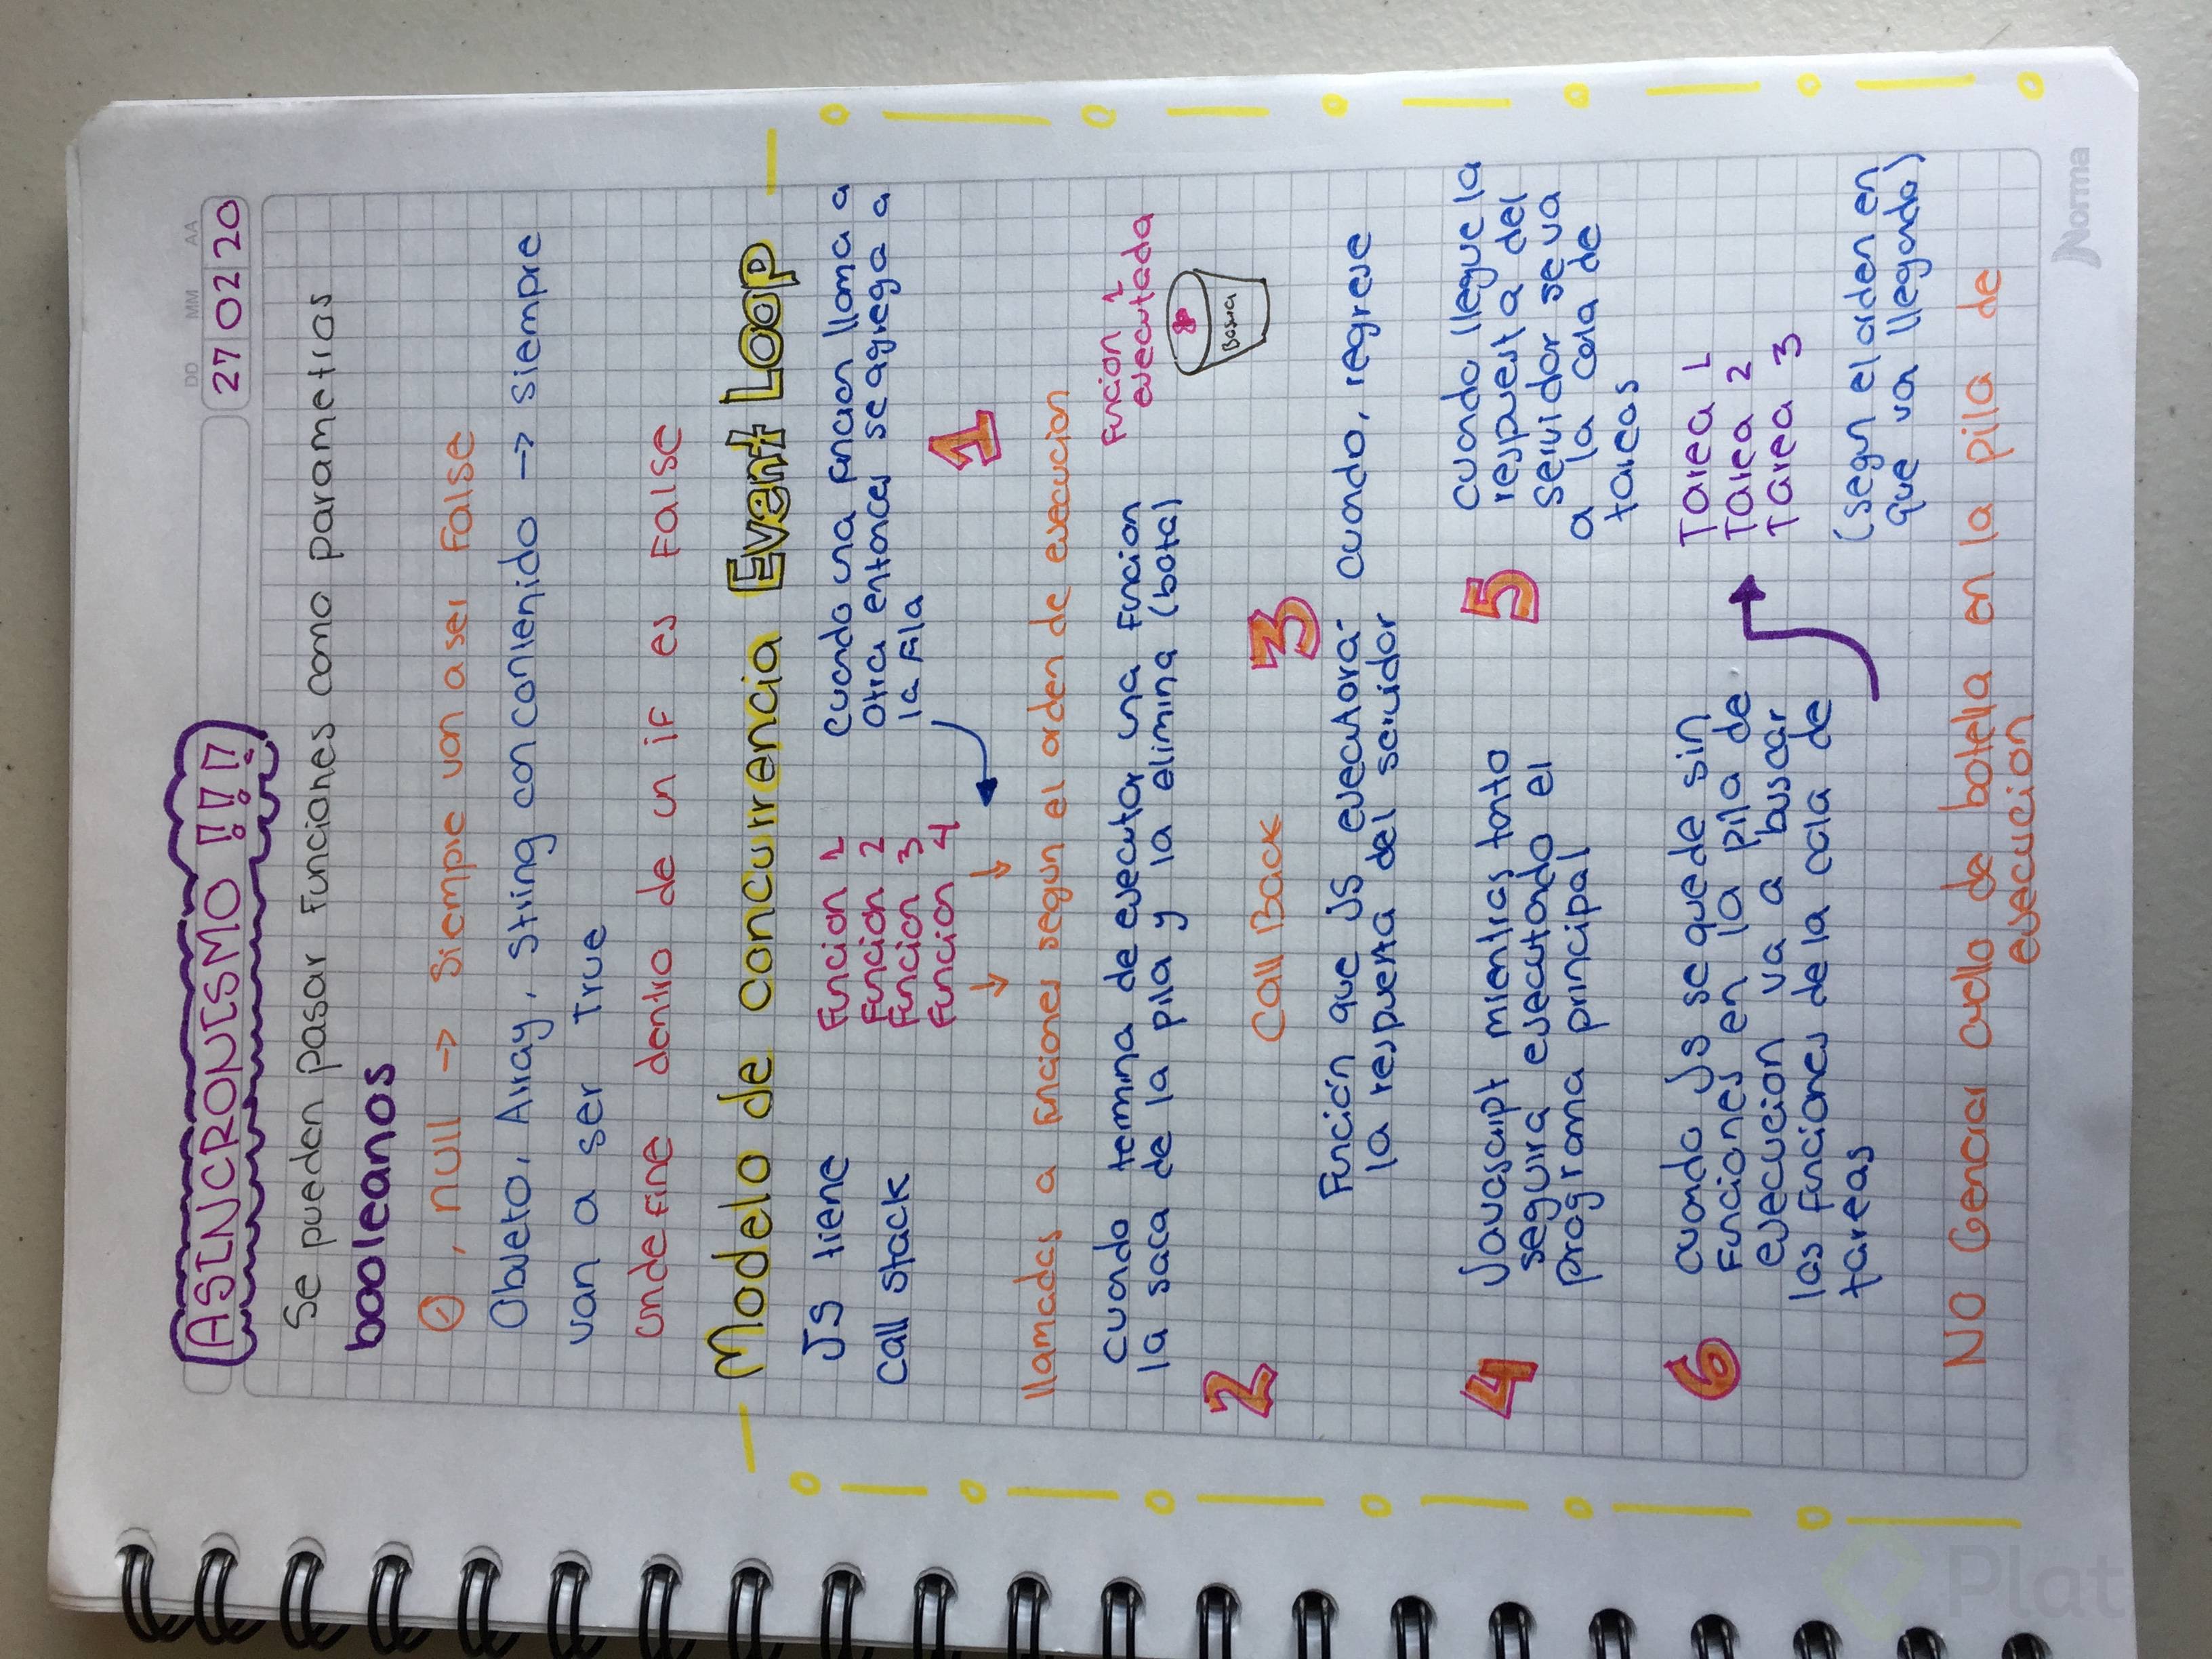 DD MM AA
27 02 20
ASINCRONISMO !!!
Se pueden pasar funciones como parametros
booleanos
0, null → siempre van a ser False
Objeto, Array, string con contenido → siempre
van a ser True
undefine dentro de un if es False
Modelo de concurrencia Event Loop
JS tiene
Call stack
Funcion 1
Funcion 2
Funcion 3
Funcion 4
Cuando una funcion llama a
otra entonces se agrega a
la fila
1
llamadas a funciones segun el orden de ejecucion
Cuando termina de ejecutar una funcion
la saca de la pila y la elimina (bota)
Funcion 1
ejecutada
Basura
2
Call Back
3
Función que JS ejecutora cuando, regrese
la respuesta del servidor
4
Javascript mientras tanto
seguira ejecutando el
programa principal
5
cuando llegue la
respuesta del
servidor se va
a la cola de
tareas
6
cuando JS se quede sin
funciones en la pila de
ejecucion va a buscar
las funciones de la cola de
tareas
Tarea 1
Tarea 2
Tarea 3
(segun el orden en
que va llegando)
NO Generar cuello de botella en la pila de
ejecucion
Norma
Plat